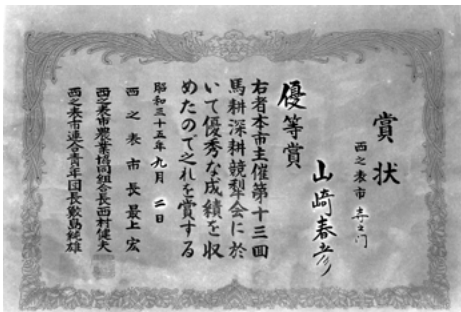 賞状
西之表市
山崎春彦
優等賞
右者本市主催第十三回
馬耕深耕競犂会に於
いて優秀な成績を収
めたので之れを賞する
昭和三十五年九月二日
西之表市長最上宏
西之表市農業協同組合長西村健夫
西之表市連合青年団長敷島純雄